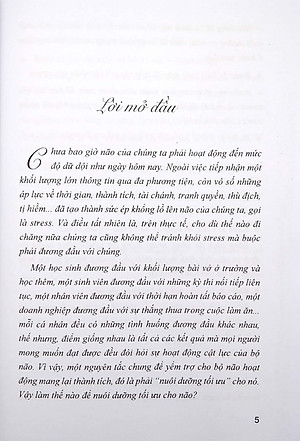 Lời mở đầu
Chưa bao giờ não của chúng ta phải hoạt động đến mức
độ dữ dội như ngày hôm nay. Ngoài việc tiếp nhận một
khối lượng lớn thông tin qua đa phương tiện, còn vô số những
áp lực về thời gian, thành tích, tài chánh, tranh quyền, thù địch,
tị hiềm... đã tạo thành sức ép khổng lồ lên não của chúng ta, gọi
là stress. Và điều tất nhiên là, trên thực tế, cho dù thế nào đi
chăng nữa chúng ta cũng không thể tránh khỏi stress mà buộc
phải đương đầu với chúng.
Một học sinh đương đầu với khối lượng bài vở ở trường và
học thêm, một sinh viên đương đầu với những kỳ thi nối tiếp liên
tục, một nhân viên đương đầu với thời hạn hoàn tất báo cáo, một
doanh nghiệp đương đầu với sự thắng thua trong cuộc làm ăn...
mỗi cá nhân đều có những tình huống đương đầu khác nhau,
thế nhưng, điểm giống nhau là tất cả các kết quả mà mọi người
mong muốn đạt được đều đòi hỏi sự hoạt động cật lực của bộ
não. Vì vậy, một nguyên tắc chung để yểm trợ cho bộ não hoạt
động mang lại thành tích, đó là phải “nuôi dưỡng tối ưu” cho nó.
Vậy làm thế nào để nuôi dưỡng tối ưu cho não?
5